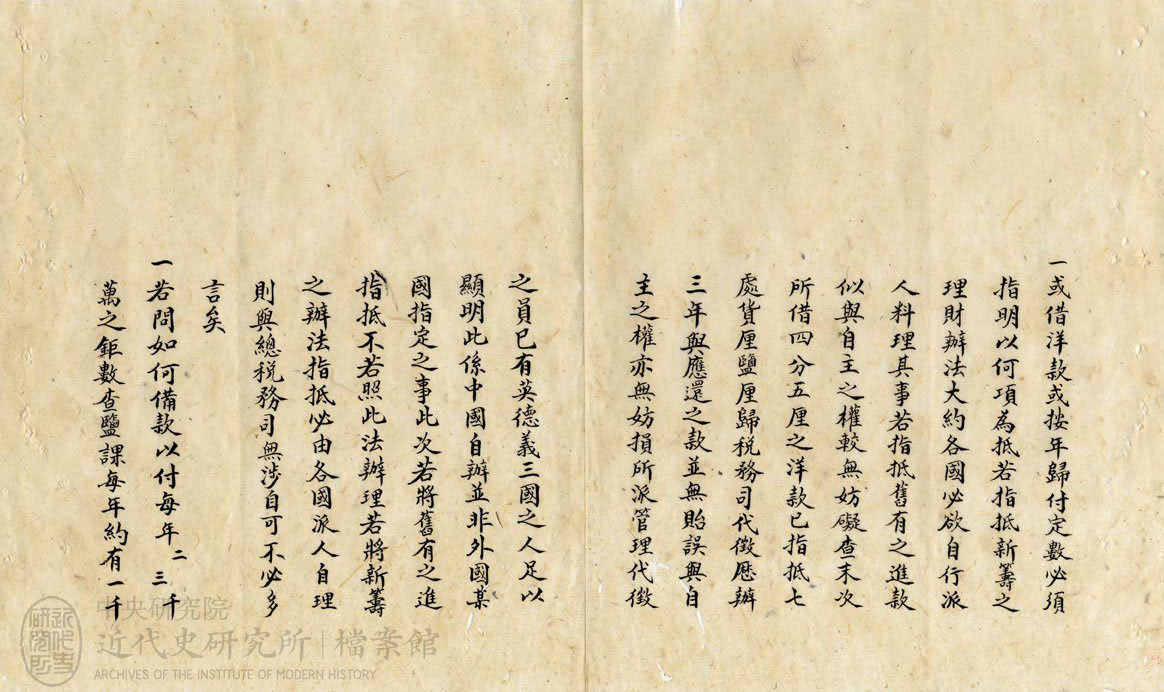 一或借洋款或按年歸付定數必須
指明以何項為抵若指抵新籌之
理財辦法大約各國必欲自行派
人料理其事若指抵舊有之進款
似與自主之權較無妨礙查末次
所借四分五厘之洋款已指抵七
處貨厘鹽厘歸稅務司代徵歷辦
三年與應還之款並無貽誤與自
主之權亦無妨損所派管理代徵
之員已有英德義三國之人足以
顯明此係中國自辦並非外國某
國指定之事此次若將舊有之進
指抵不若照此法辦理若將新籌
之辦法指抵必由各國派人自理
則與總稅務司無涉自可不必多
言矣
一若問如何備款以付每年二三千
萬之鉅數查鹽課每年約有一千
中央研究院
近代史研究所 檔案館
ARCHIVES OF THE INSTITUTE OF MODERN HISTORY